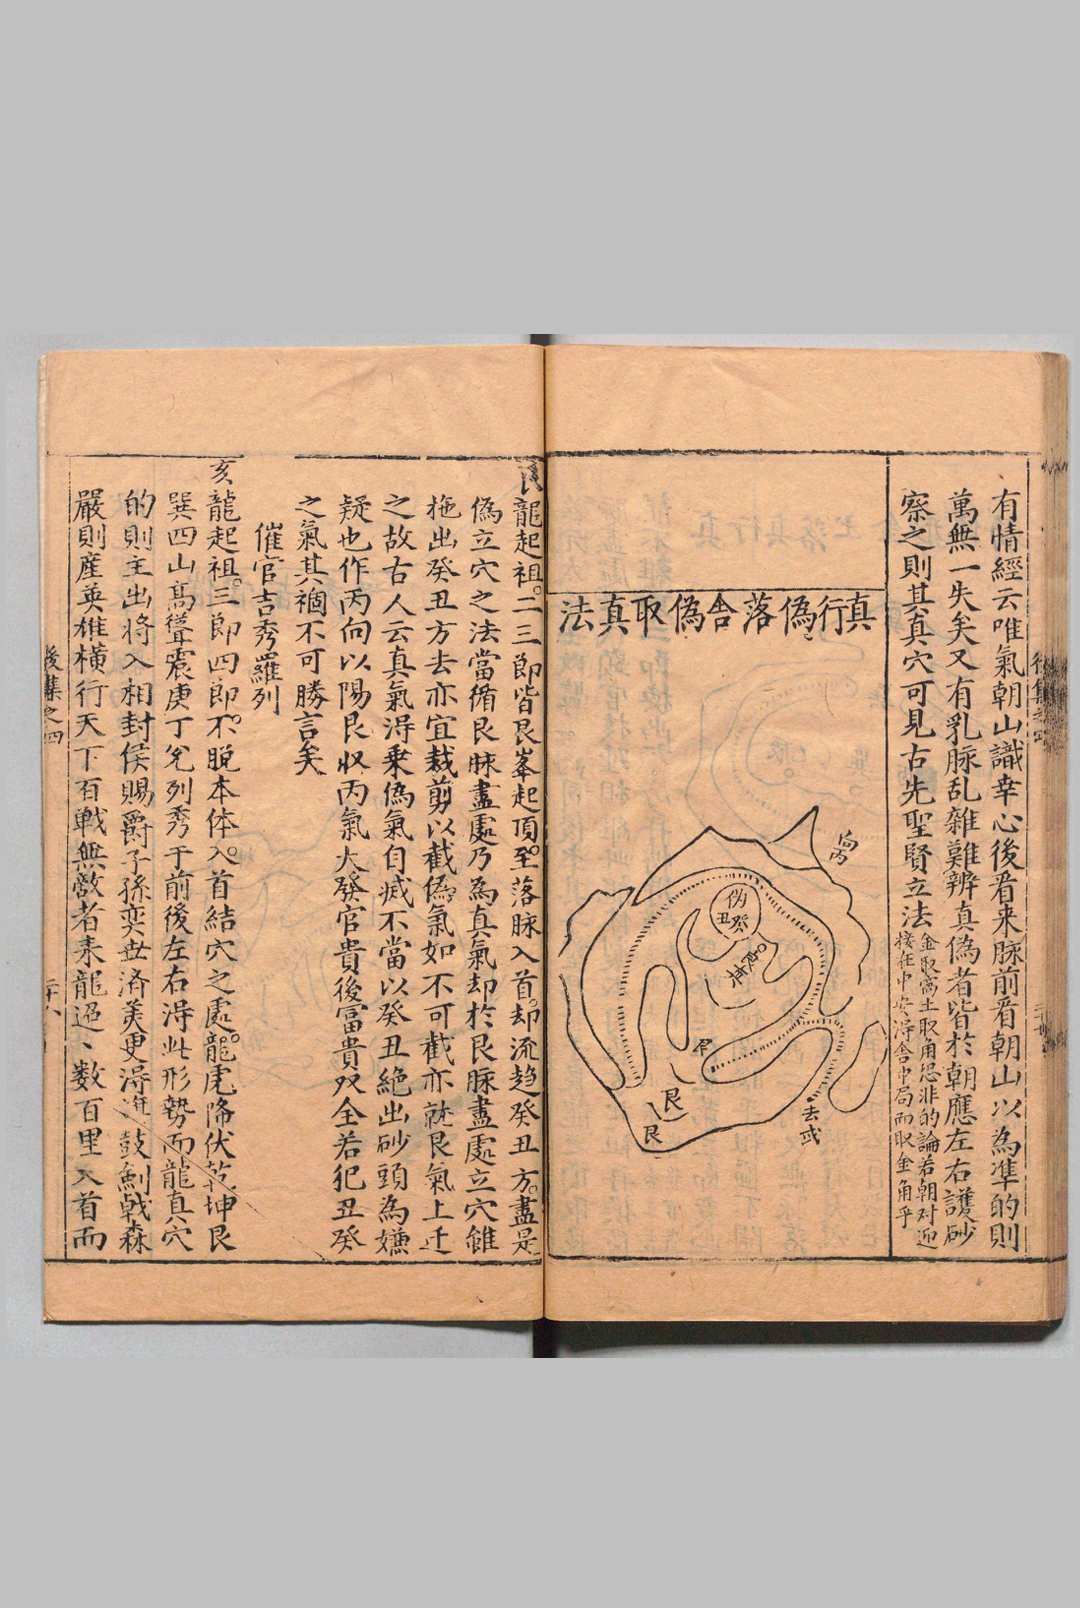 有情經云唯氣朝山識幸心後看来脉前看朝山以為準的則
萬無一失矣又有乳脉乱雜難辨真偽者皆於朝應左右護砂
察之則其真穴可見古先聖賢立法
金取窩土取角恐非的論若朝对迎
接在中央淂舍中局而取金角乎
真行偽落舍偽取真法
向丙
伪
癸丑
艮
艮
去或
後集之四
艮龍起祖。二三節皆艮峯起頂。至落脉入首。却流趋癸丑方。盡是
偽立穴之法當循艮脉盡處乃為真氣却於艮脉盡處立穴雖
拖出癸丑方去亦宜裁剪以截偽氣如不可截亦就艮氣上迁
之故古人云真氣淂乗偽氣自滅不當以癸丑絶出砂頭為嫌
疑也作丙向以陽艮収丙氣大發官貴後冨貴双全若犯丑癸
之氣其禍不可勝言矣
催官吉秀羅列
亥龍起祖。三節四節。不脱本体。入首結穴之處。龍虎降伏乾坤艮
巽四山髙聳震庚丁兊列秀于前後左右淂此形勢而龍真穴
的則主出将入相封侯賜爵子孫奕丗済美更淂旗鼓劍戟森
嚴則産英雄横行天下百戰無敵者来龍迢〻数百里入首而
後集之四
二十八